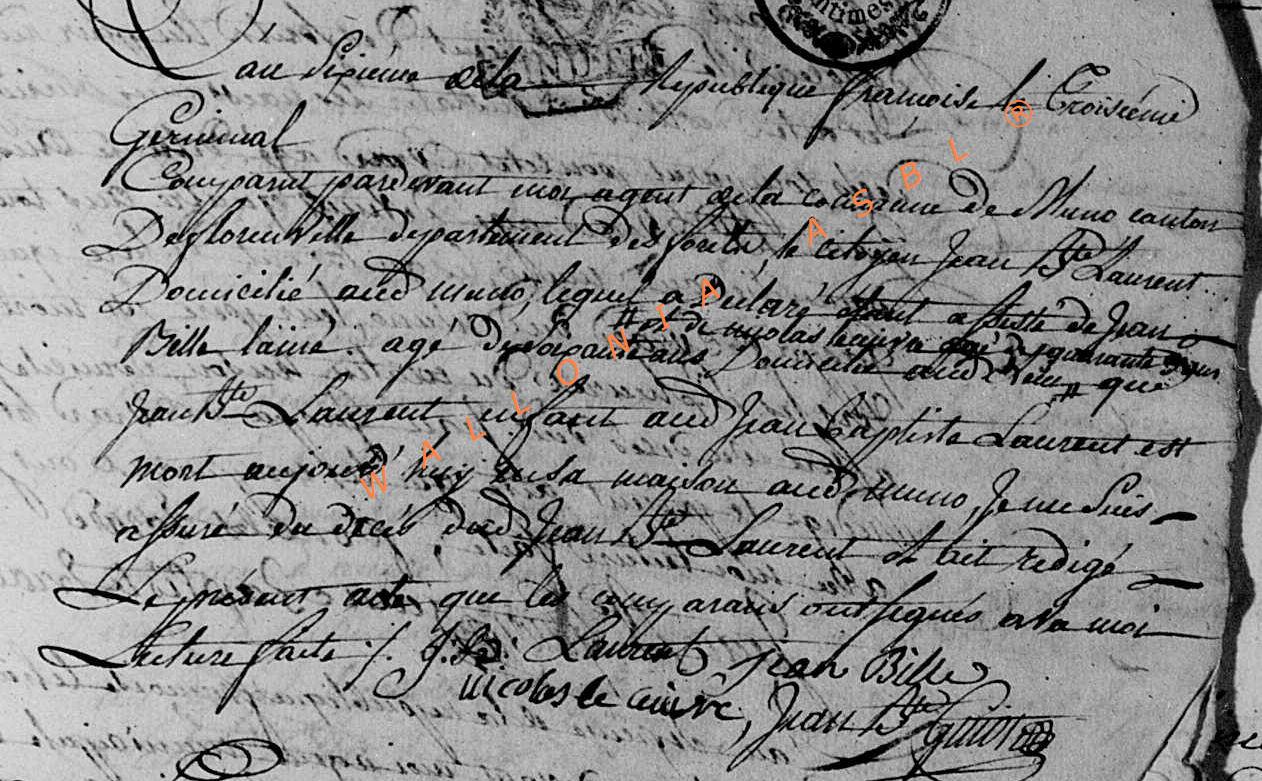 ntimes
an Sixième de la République françoise le Troisième
Germinal
Comparut pardevant moi agent de la commune de Muno canton
De florenville departement des forets, le citoyen Jean Bte Laurent
Domicilié aud muno, lequel a Declaré étant assisté de Jean
et de nicolas lecuivre agé de quarante deux
Bille lainé agé de soixante ans Domicilié aud lieu que
Jean Bte Laurent enfant aud Jean Baptiste Laurent est
mort aujourd'huy en sa maison aud muno, Je me suis
assuré du decés dud Jean Bte Laurent et ait redigé
Le present acte que les comparans ont signés avec moi
Lecture faite /. J. B. Laurent Jean Bille
nicolas le cuivre, Jean Bte Guiot
WALLONIA ASBL ®